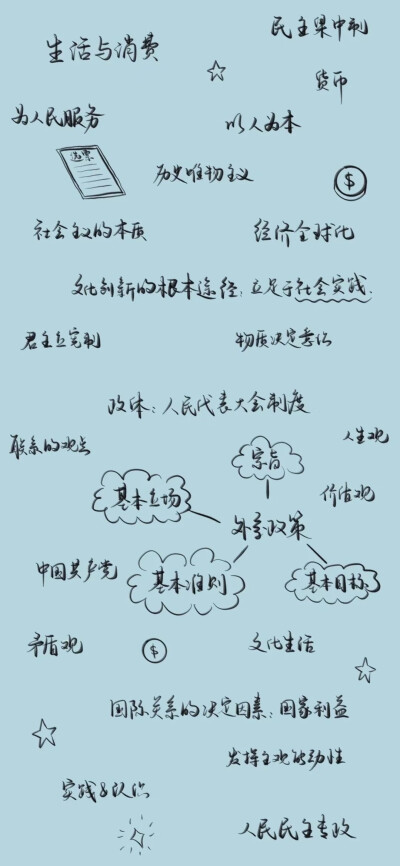 民主集中制
生活与消费
货币
为人民服务
以人为本
选票
历史唯物主义
$
社会主义的本质
经济全球化
文化创新的根本途径：立足于社会实践.
君主立宪制
物质决定意识
政体：人民代表大会制度
联系的观点
宗旨
人生观
基本立场
价值观
外交政策
中国共产党
基本准则
基本目标
矛盾观
$
文化生活
国际关系的决定因素：国家利益
发挥主观能动性
实践&认识
人民民主专政